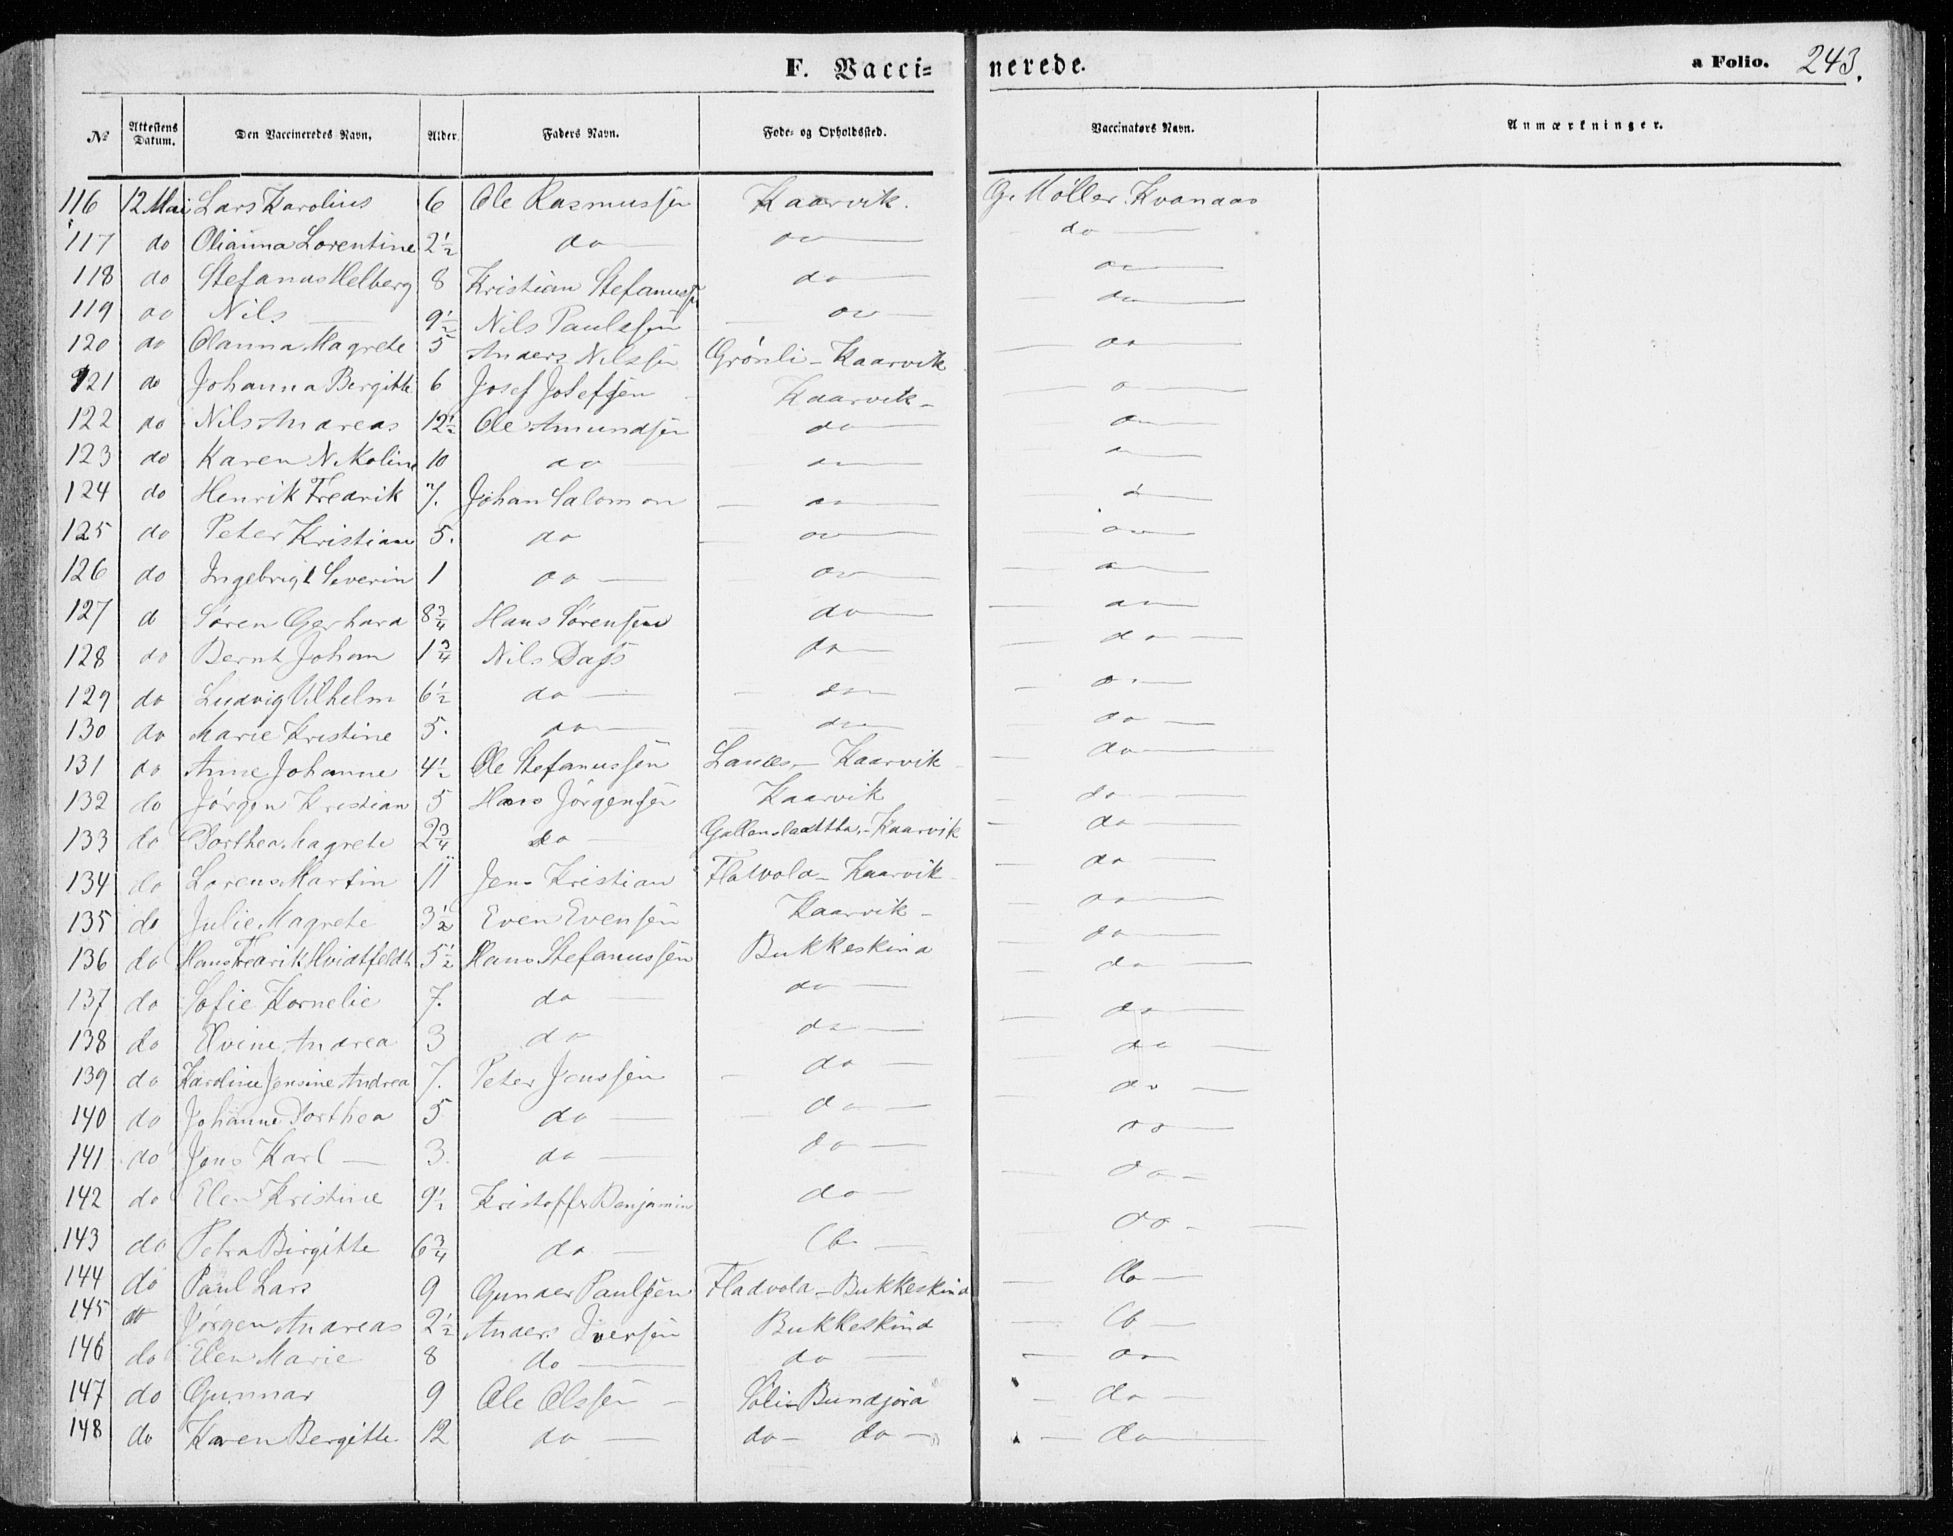 F. Vacci= nerede. a Folio. 243.
No Attestens Datum. Den Vaccineredes Navn. Alder. Faders Navn. Føde- og Opholdssted. Vaccinatørs Navn. Anmærkninger.
116 12 Mai Lars Karolius 6 Ole Rasmussen Kaarvik. G. Møller. Kvanaas
117 do Olianna Lorentine 2½ do do do
118 do Stefanus Helberg 8 Kristian Stefanussen do do
119 do Nils 9½ Nils Paulssen do do
120 do Olanna Magrete 5 Anders Nilssen Grønli - Kaarvik do
121 do Johanna Bergitte 6 Josef Josefsen Kaarvik do
122 do Nils Andreas 12½ Ole Amundsen do do
123 do Karen Nikoline 10 do do do
124 do Henrik Fredrik 7. Johan Salomon do do
125 do Peter Kristian 5. do do do
126 do Ingebrigt Severin 1 do do do
127 do Søren Gerhard 8¾ Hans Sørensen do do
128 do Bernt Johan 1¾ Nils Dass do do
129 do Ludvig Vilhelm 6½ do do do
130 do Marie Kristine 5. do do do
131 do Anne Johanne 4½ Ole Stefanussen Lanæs - Kaarvik do
132 do Jørgen Kristian 5 Hans Jørgensen Kaarvik do
133 do Dorthea Magrete 2¾ do - Kaarvik do
134 do Lorens Martin 11 Jens Kristian Flatvola - Kaarvik do
135 do Julie Magrete 3½ Even Evensen Kaarvik do
136 do Hans Fredrik Hvidtfeldt 5½ Hans Stefanussen Bukkeskind do
137 do Sofie Kornelie 7. do do do
138 do Elvine Andrea 3 do do do
139 do Karoline Jensine Andrea 7. Peter Jenssen do do
140 do Johanne Dorthea 5 do do do
141 do Jens Karl 3. do do do
142 do Elen Kristine 9½ Kristoffer Benjamin do do
143 do Petra Birgitte 6¾ do do do
144 do Paul Lars 9 Gunder Paulsen Fladvola - Bukkeskind do
145 do Jørgen Andreas 2½ Anders Iversen Bukkeskind do
146 do Elen Marie 8 do do do
147 do Gunnar 9 Ole Olssen Soli - Bundjora do
148 do Karen Bergitte 12 do do - do do